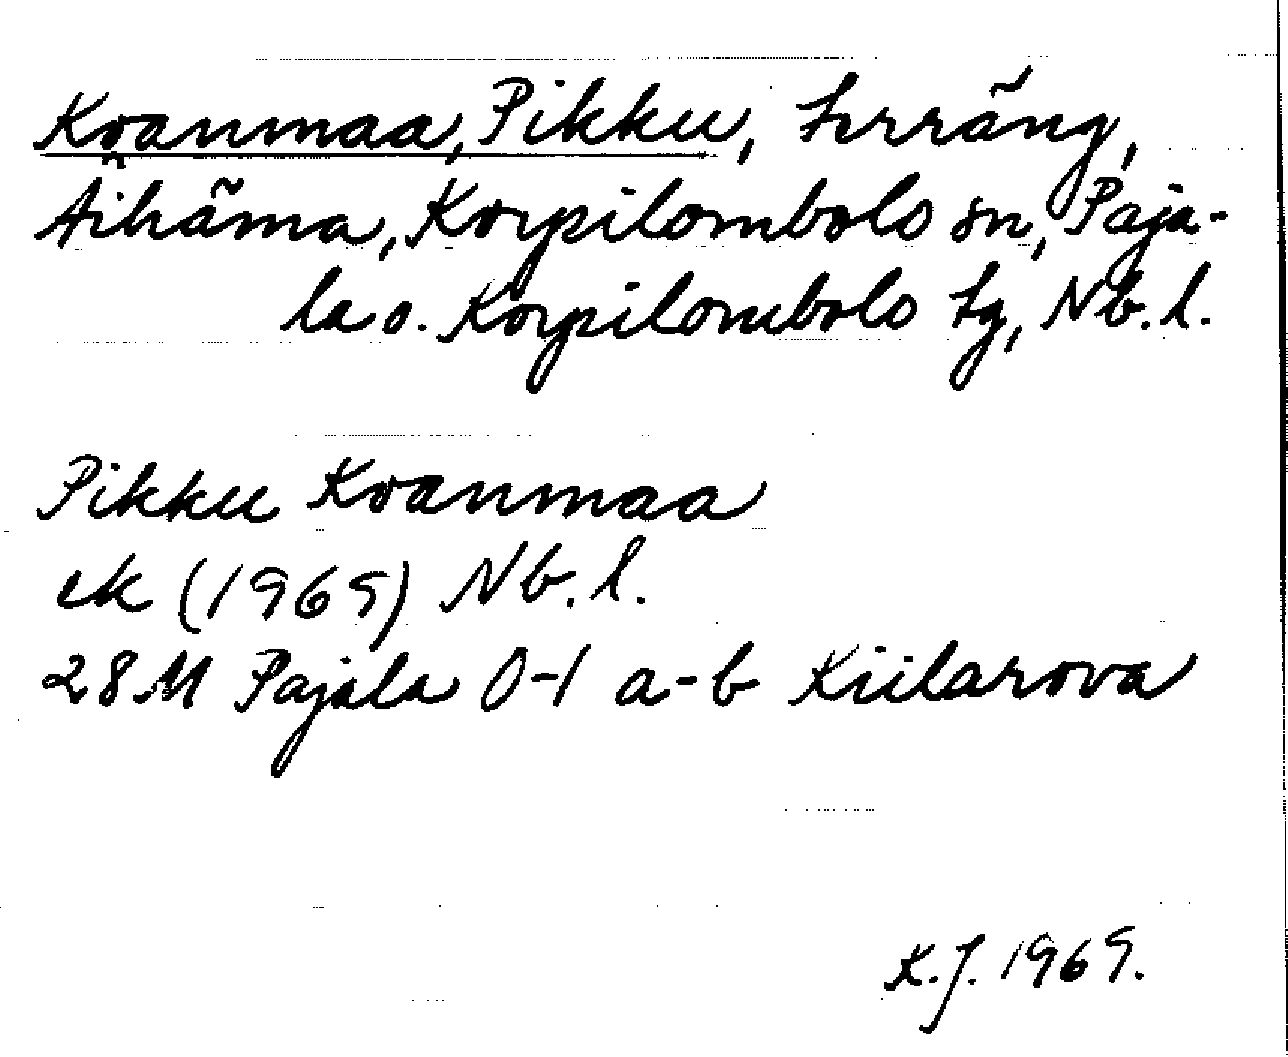 Koanmaa, Pikku, torräng,
Äihäma, Korpilombolo sn, Paja-
la o. Korpilombolo tg, Nb.l.
Pikku Koanmaa
ek (1969) Nb.l.
28 M Pajala 0-1 a-b Kiilarova
K.J. 1969.